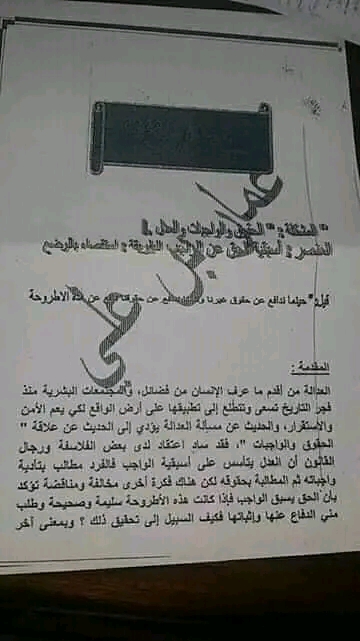 " المشكلة : " الحقوق والواجبات والعدل .
العنصر : أسبقية الحق عن الواجب الطريقة : استقصاء بالوضع
قيل : " حينما ندافع عن حقوق غيرنا ندافع عن حقوقنا دافع عن هذه الاطروحة
عمار بن علي
المقدمة :
العدالة من أقدم ما عرف الإنسان من فضائل، والمجتمعات البشرية منذ
فجر التاريخ تسعى وتتطلع إلى تطبيقها على أرض الواقع لكي يعم الأمن
والاستقرار، والحديث عن مسألة العدالة يؤدي إلى الحديث عن علاقة "
الحقوق والواجبات " ، فقد ساد اعتقاد لدى بعض الفلاسفة ورجال
القانون أن العدل يتأسس على أسبقية الواجب فالفرد مطالب بتأدية
واجباته ثم المطالبة بحقوقه لكن هناك فكرة أخرى مخالفة ومناقضة تؤكد
بأن الحق يسبق الواجب فإذا كانت هذه الأطروحة سليمة وصحيحة وطلب
مني الدفاع عنها وإثباتها فكيف السبيل إلى تحقيق ذلك ؟ وبمعنى آخر